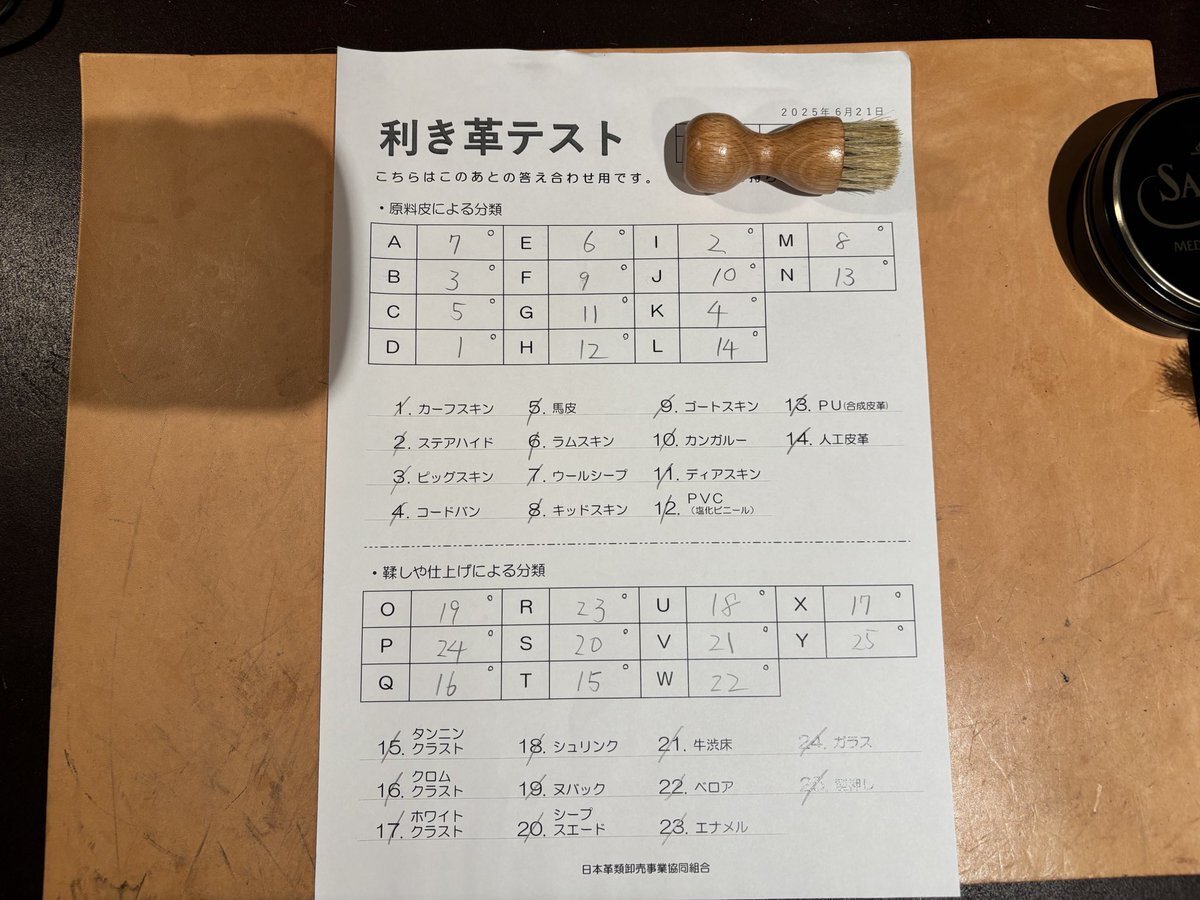 2025年6月21日
利き革テスト
こちらはこのあとの答え合わせ用です。
・原料皮による分類
A 7 ° E 6 ° I 2 ° M 8 °
B 3 ° F 9 ° J 10 ° N 13 °
C 5 ° G 11 ° K 4 °
D 1 ° H 12 ° L 14 °
1. カーフスキン 5. 馬皮 9. ゴートスキン 13. PU(合成皮革)
2. ステアハイド 6. ラムスキン 10. カンガルー 14. 人工皮革
3. ピッグスキン 7. ウールシープ 11. ディアスキン
4. コードバン 8. キッドスキン 12. PVC（塩化ビニール）
・鞣しや仕上げによる分類
O 19 ° R 23 ° U 18 ° X 17 °
P 24 ° S 20 ° V 21 ° Y 25 °
Q 16 ° T 15 ° W 22 °
15. タンニンクラスト 18. シュリンク 21. 牛渋床 24. ガラス
16. クロムクラスト 19. ヌバック 22. ベロア 25. 型押し
17. ホワイトクラスト 20. シープスエード 23. エナメル
日本革類卸売事業協同組合
SA
MED